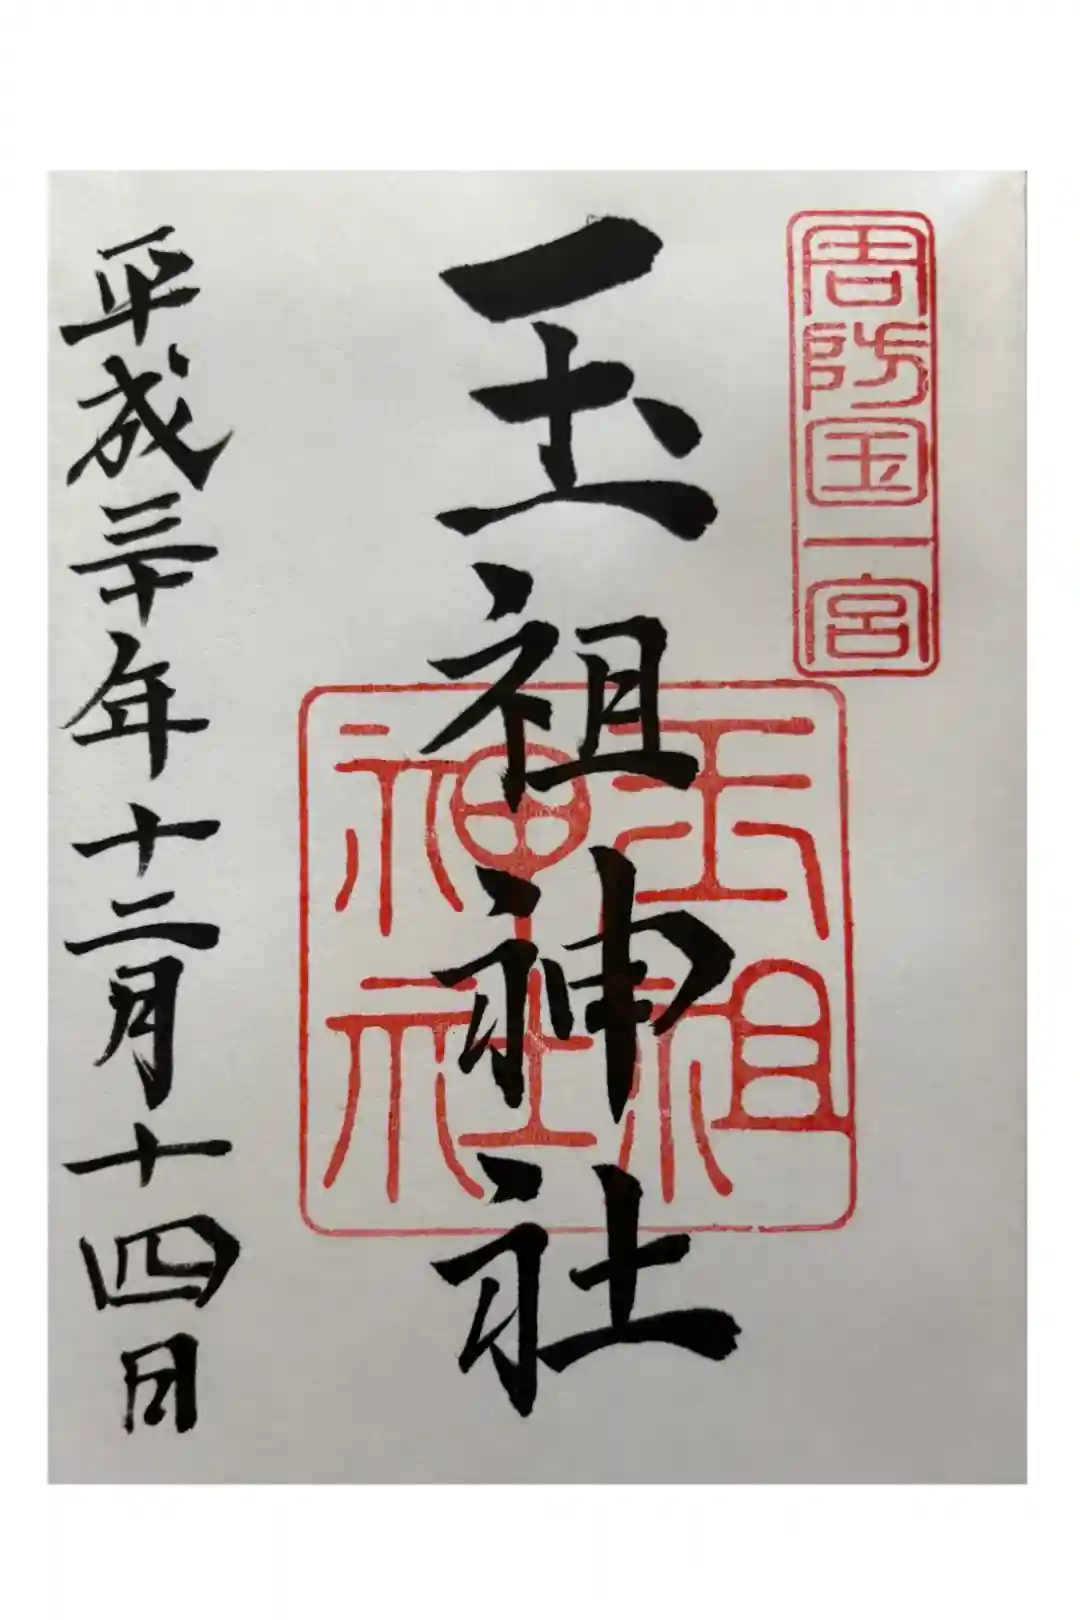 周防国一宮
玉祖神社
玉祖
神社
平成三十年十二月十四日